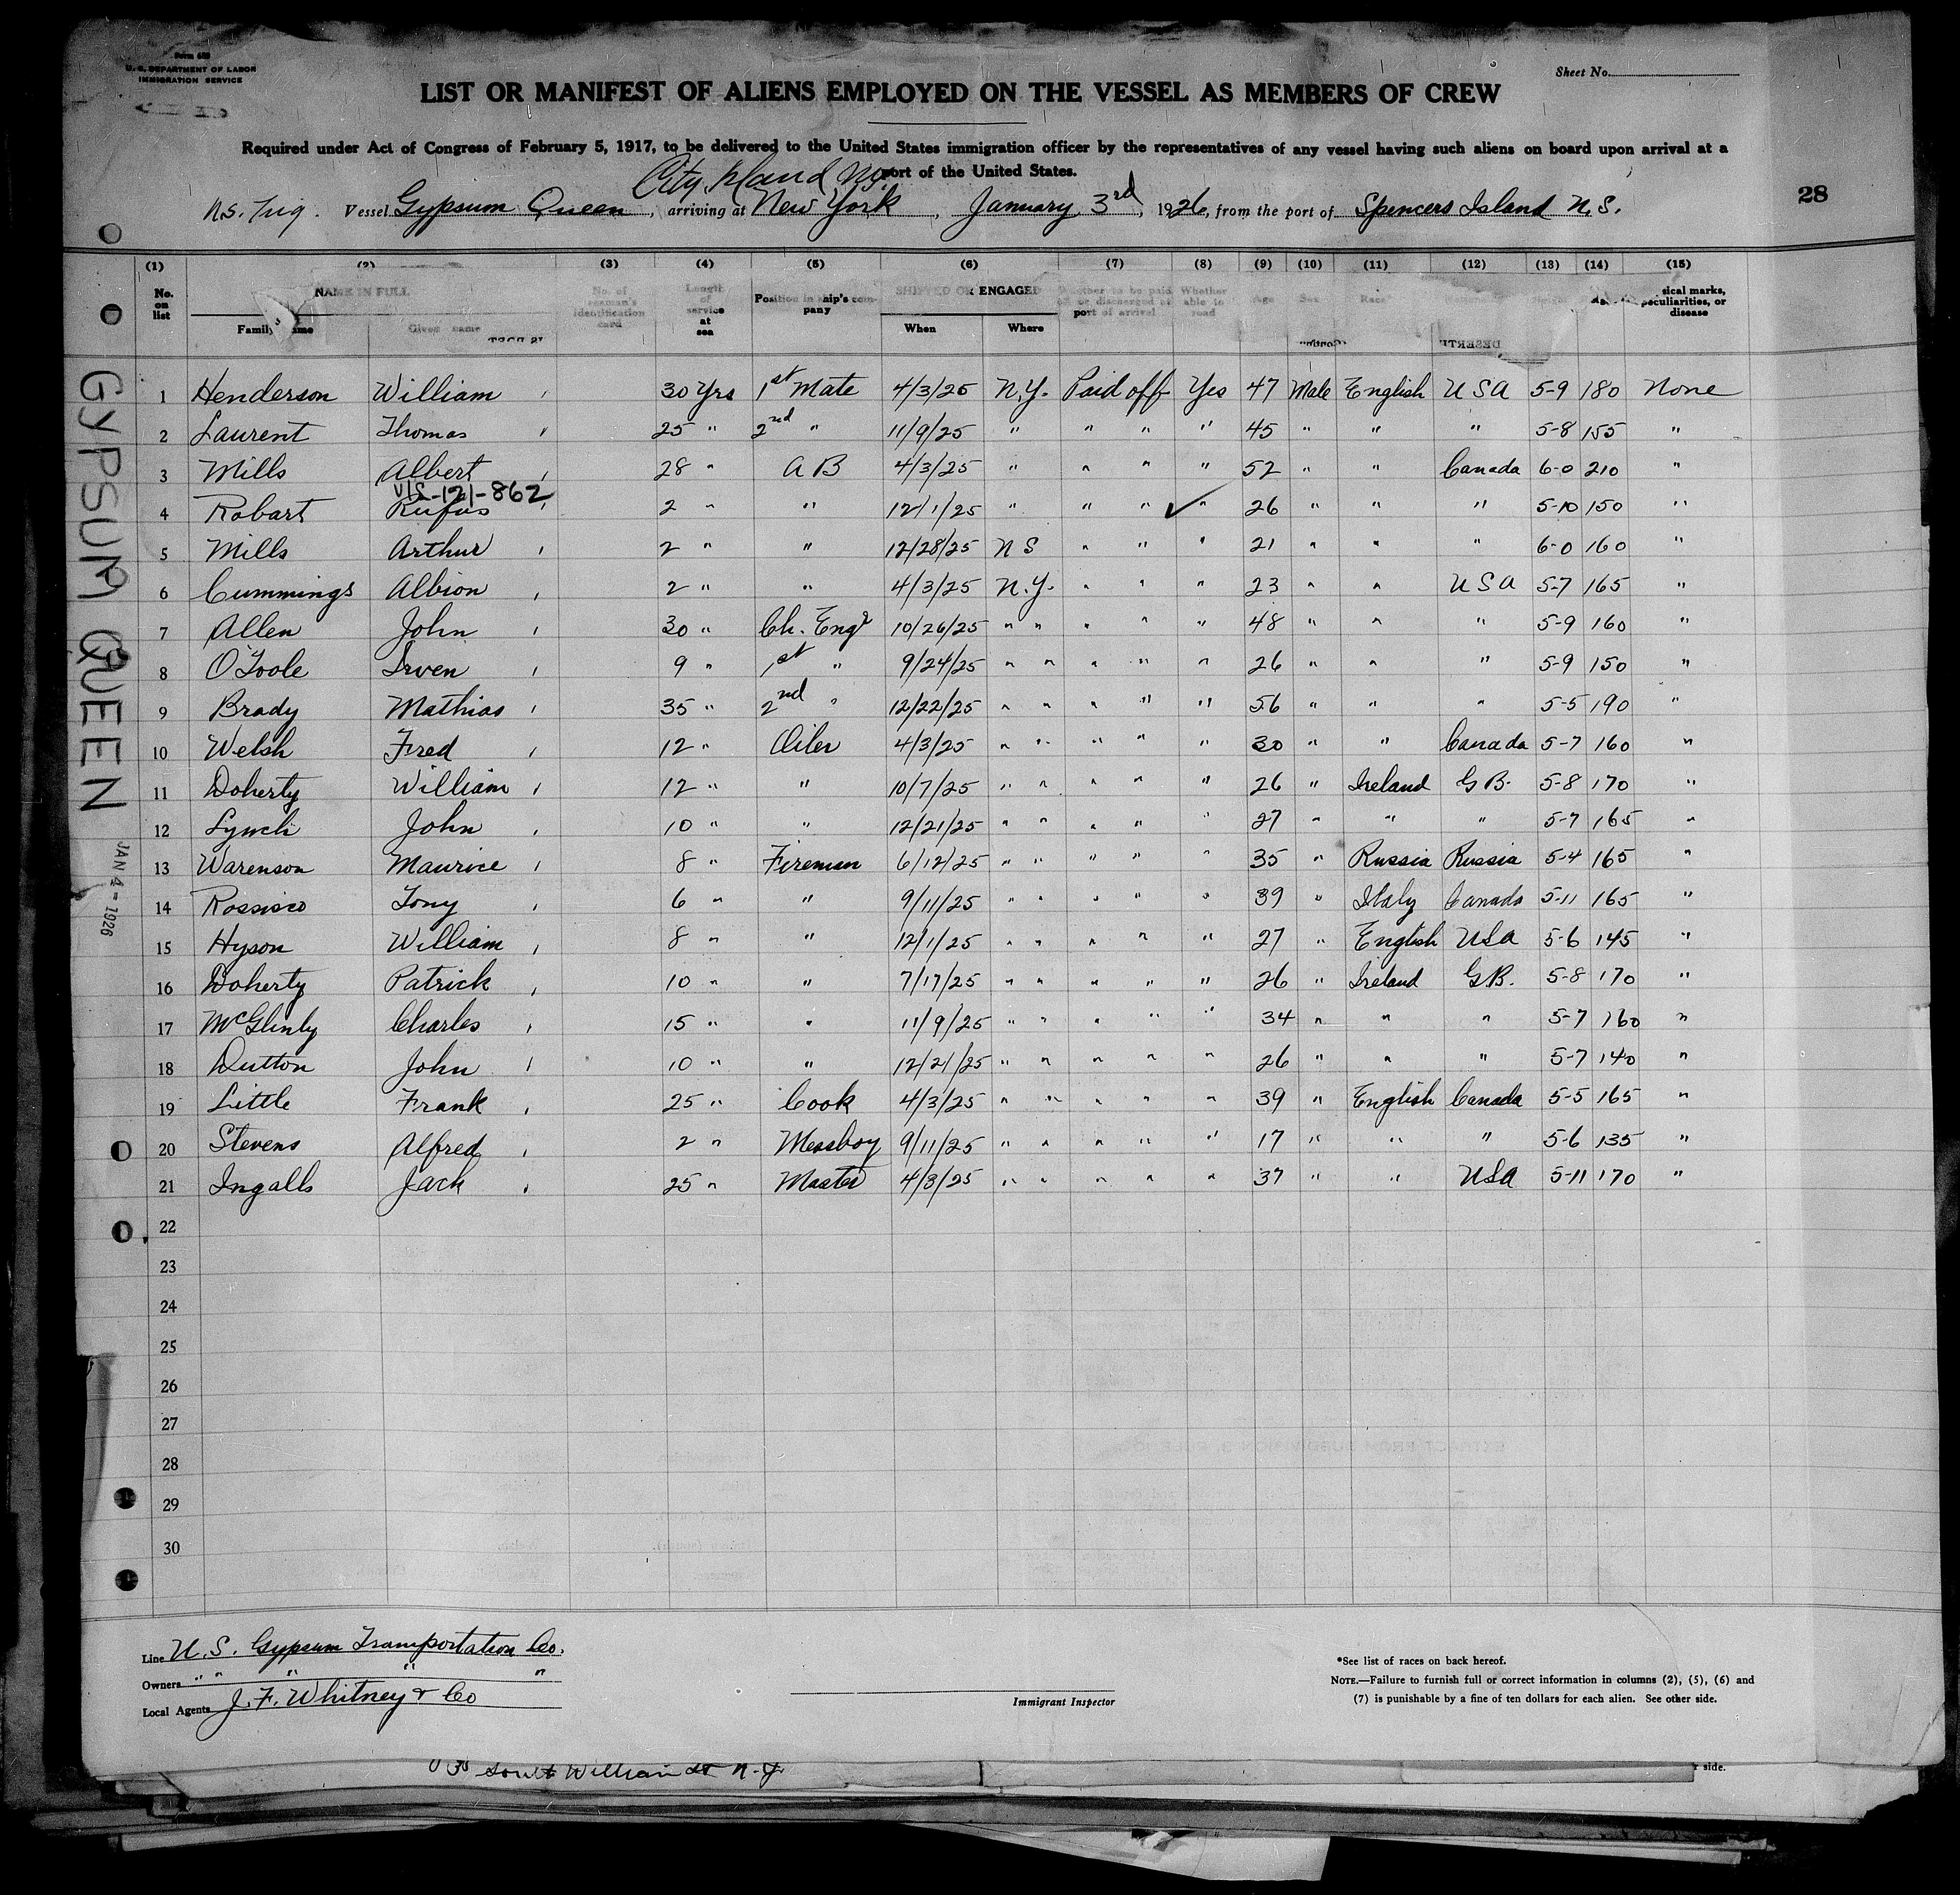 Form 680
U. S. DEPARTMENT OF LABOR
IMMIGRATION SERVICE
Sheet No.
LIST OR MANIFEST OF ALIENS EMPLOYED ON THE VESSEL AS MEMBERS OF CREW
Required under Act of Congress of February 5, 1917, to be delivered to the United States immigration officer by the representatives of any vessel having such aliens on board upon arrival at a
port of the United States.
City Island N.Y.
Vessel Gypsum Queen, arriving at New York, January 3rd, 1926, from the port of Spencers Island N.S.
28
(1) (2) (3) (4) (5) (6) (7) (8) (9) (10) (11) (12) (13) (14) (15)
No. on list NAME IN FULL No. of seaman's identification card Length of service at sea Position in ship's company SHIPPED OR ENGAGED Whether to be paid off or discharged at port of arrival Whether able to read Age Sex Race sical marks, peculiarities, or disease
Family name Given name When Where
1 Henderson William 30 Yrs 1st Mate 4/3/25 N.Y. Paid off Yes 47 Male English USA 5-9 180 None
2 Laurent Thomas 25 " 2nd " 11/9/25 " " " " 45 " " " 5-8 155 "
3 Mills Albert 28 " AB 4/3/25 " " " " 52 " " Canada 6-0 210 "
VIS-121-862
4 Robart Rufus 2 " " 12/1/25 " " " ✓ " 26 " " " 5-10 150 "
5 Mills Arthur 2 " " 12/28/25 N S " " " 21 " " " 6-0 160 "
6 Cummings Albion 2 " " 4/3/25 N.Y. " " " 23 " " USA 5-7 165 "
7 Allen John 30 " Ch. Engr 10/26/25 " " " " " 48 " " " 5-9 160 "
8 O'Toole Irven 9 " 1st " 9/24/25 " " " " " 26 " " " 5-9 150 "
9 Brady Mathias 35 " 2nd " 12/22/25 " " " " " 56 " " " 5-5 190 "
10 Welsh Fred 12 " Oiler 4/3/25 " " " " " 30 " " Canada 5-7 160 "
11 Doherty William 12 " " 10/7/25 " " " " " 26 " Ireland G.B. 5-8 170 "
12 Lynch John 10 " " 12/21/25 " " " " " 27 " " " 5-7 165 "
13 Warenson Maurice 8 " Fireman 6/12/25 " " " " " 35 " Russia Russia 5-4 165 "
14 Rossisco Tony 6 " " 9/11/25 " " " " " 39 " Italy Canada 5-11 165 "
15 Hyson William 8 " " 12/1/25 " " " " " 27 " English USA 5-6 145 "
16 Doherty Patrick 10 " " 7/17/25 " " " " " 26 " Ireland G.B. 5-8 170 "
17 McGlinly Charles 15 " " 11/9/25 " " " " " 34 " " " 5-7 160 "
18 Dutton John 10 " " 12/21/25 " " " " " 26 " " " 5-7 140 "
19 Little Frank 25 " Cook 4/3/25 " " " " " 39 " English Canada 5-5 165 "
20 Stevens Alfred 2 " Messboy 9/11/25 " " " " " 17 " " " 5-6 135 "
21 Ingalls Jack 25 " Master 4/3/25 " " " " " 37 " " USA 5-11 170 "
22
23
24
25
26
27
28
29
30
GYPSUM QUEEN
JAN 4 - 1926
Line U.S. Gypsum Transportation Co.
Owners " " " " "
Local Agents J. F. Whitney & Co
Immigrant Inspector
*See list of races on back hereof.
NOTE.—Failure to furnish full or correct information in columns (2), (5), (6) and
(7) is punishable by a fine of ten dollars for each alien. See other side.
South William St N.Y.
r side.